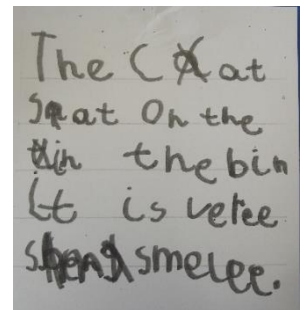 The Cat
Sat On the
in the bin
it is veree
smelee.